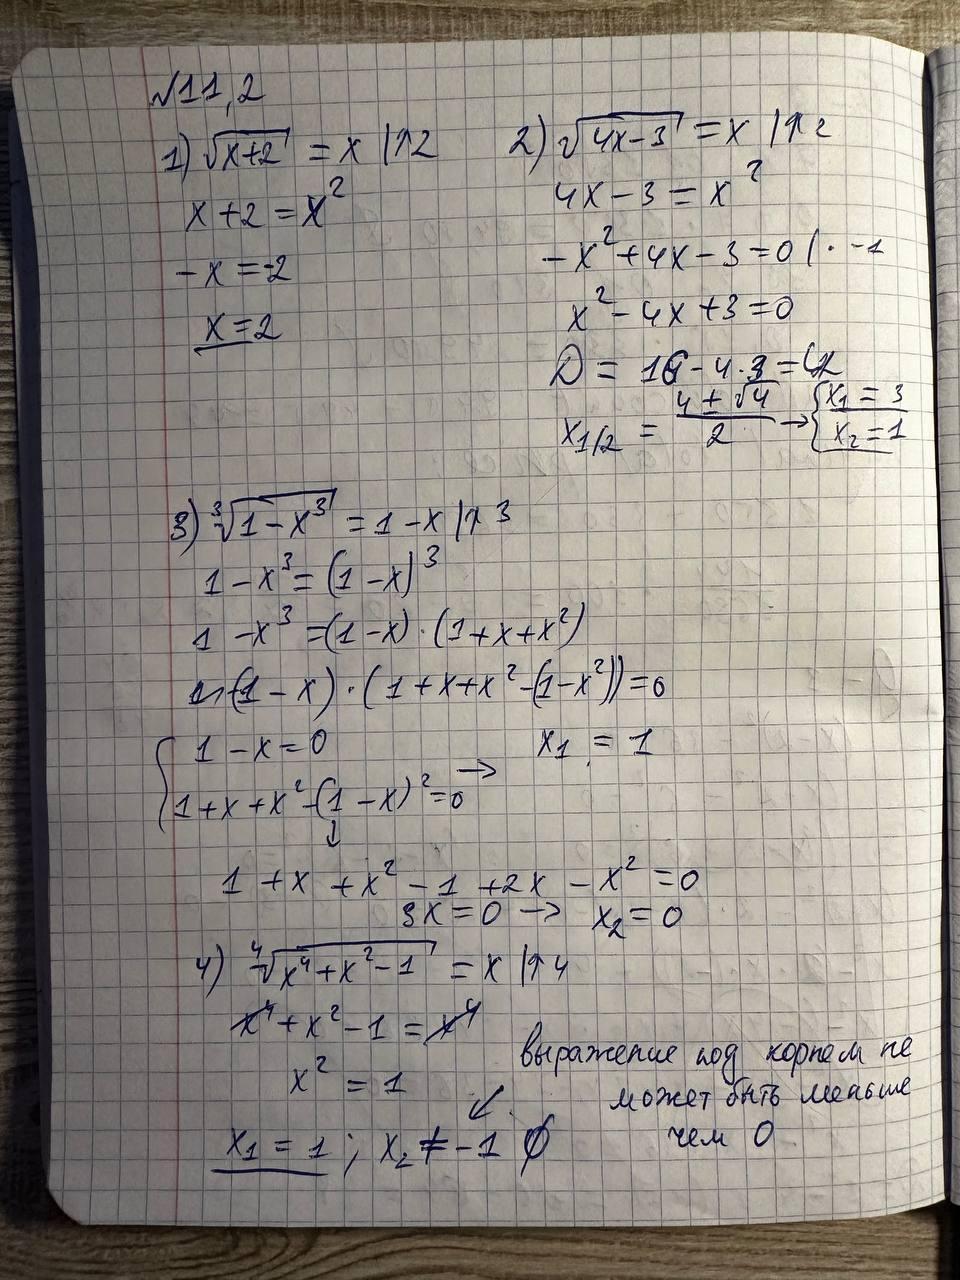 №11,2
1) √(x+2) = x |↑2
x + 2 = x²
-x = -2
x = 2
2) √(4x-3) = x |↑2
4x - 3 = x²
-x² + 4x - 3 = 0 | · -1
x² - 4x + 3 = 0
D = 16 - 4·3 = 4
x₁/₂ = (4 ± √4)/2 → { x₁ = 3
x₂ = 1
3) ³√(1-x³) = 1 - x |↑3
1 - x³ = (1 - x)³
1 - x³ = (1-x) · (1+x+x²)
(1 - x) · (1 + x + x² - (1-x²)) = 0
{ 1 - x = 0
x₁ = 1
1 + x + x² - (1 - x)² = 0 →
↓
1 + x + x² - 1 + 2x - x² = 0
3x = 0 → x₂ = 0
4) ⁴√(x⁴+x²-1) = x |↑4
x⁴ + x² - 1 = x⁴
x² = 1
x₁ = 1 ; x₂ ≠ -1 ∅
↙
выражение под корнем не
может быть меньше
чем 0